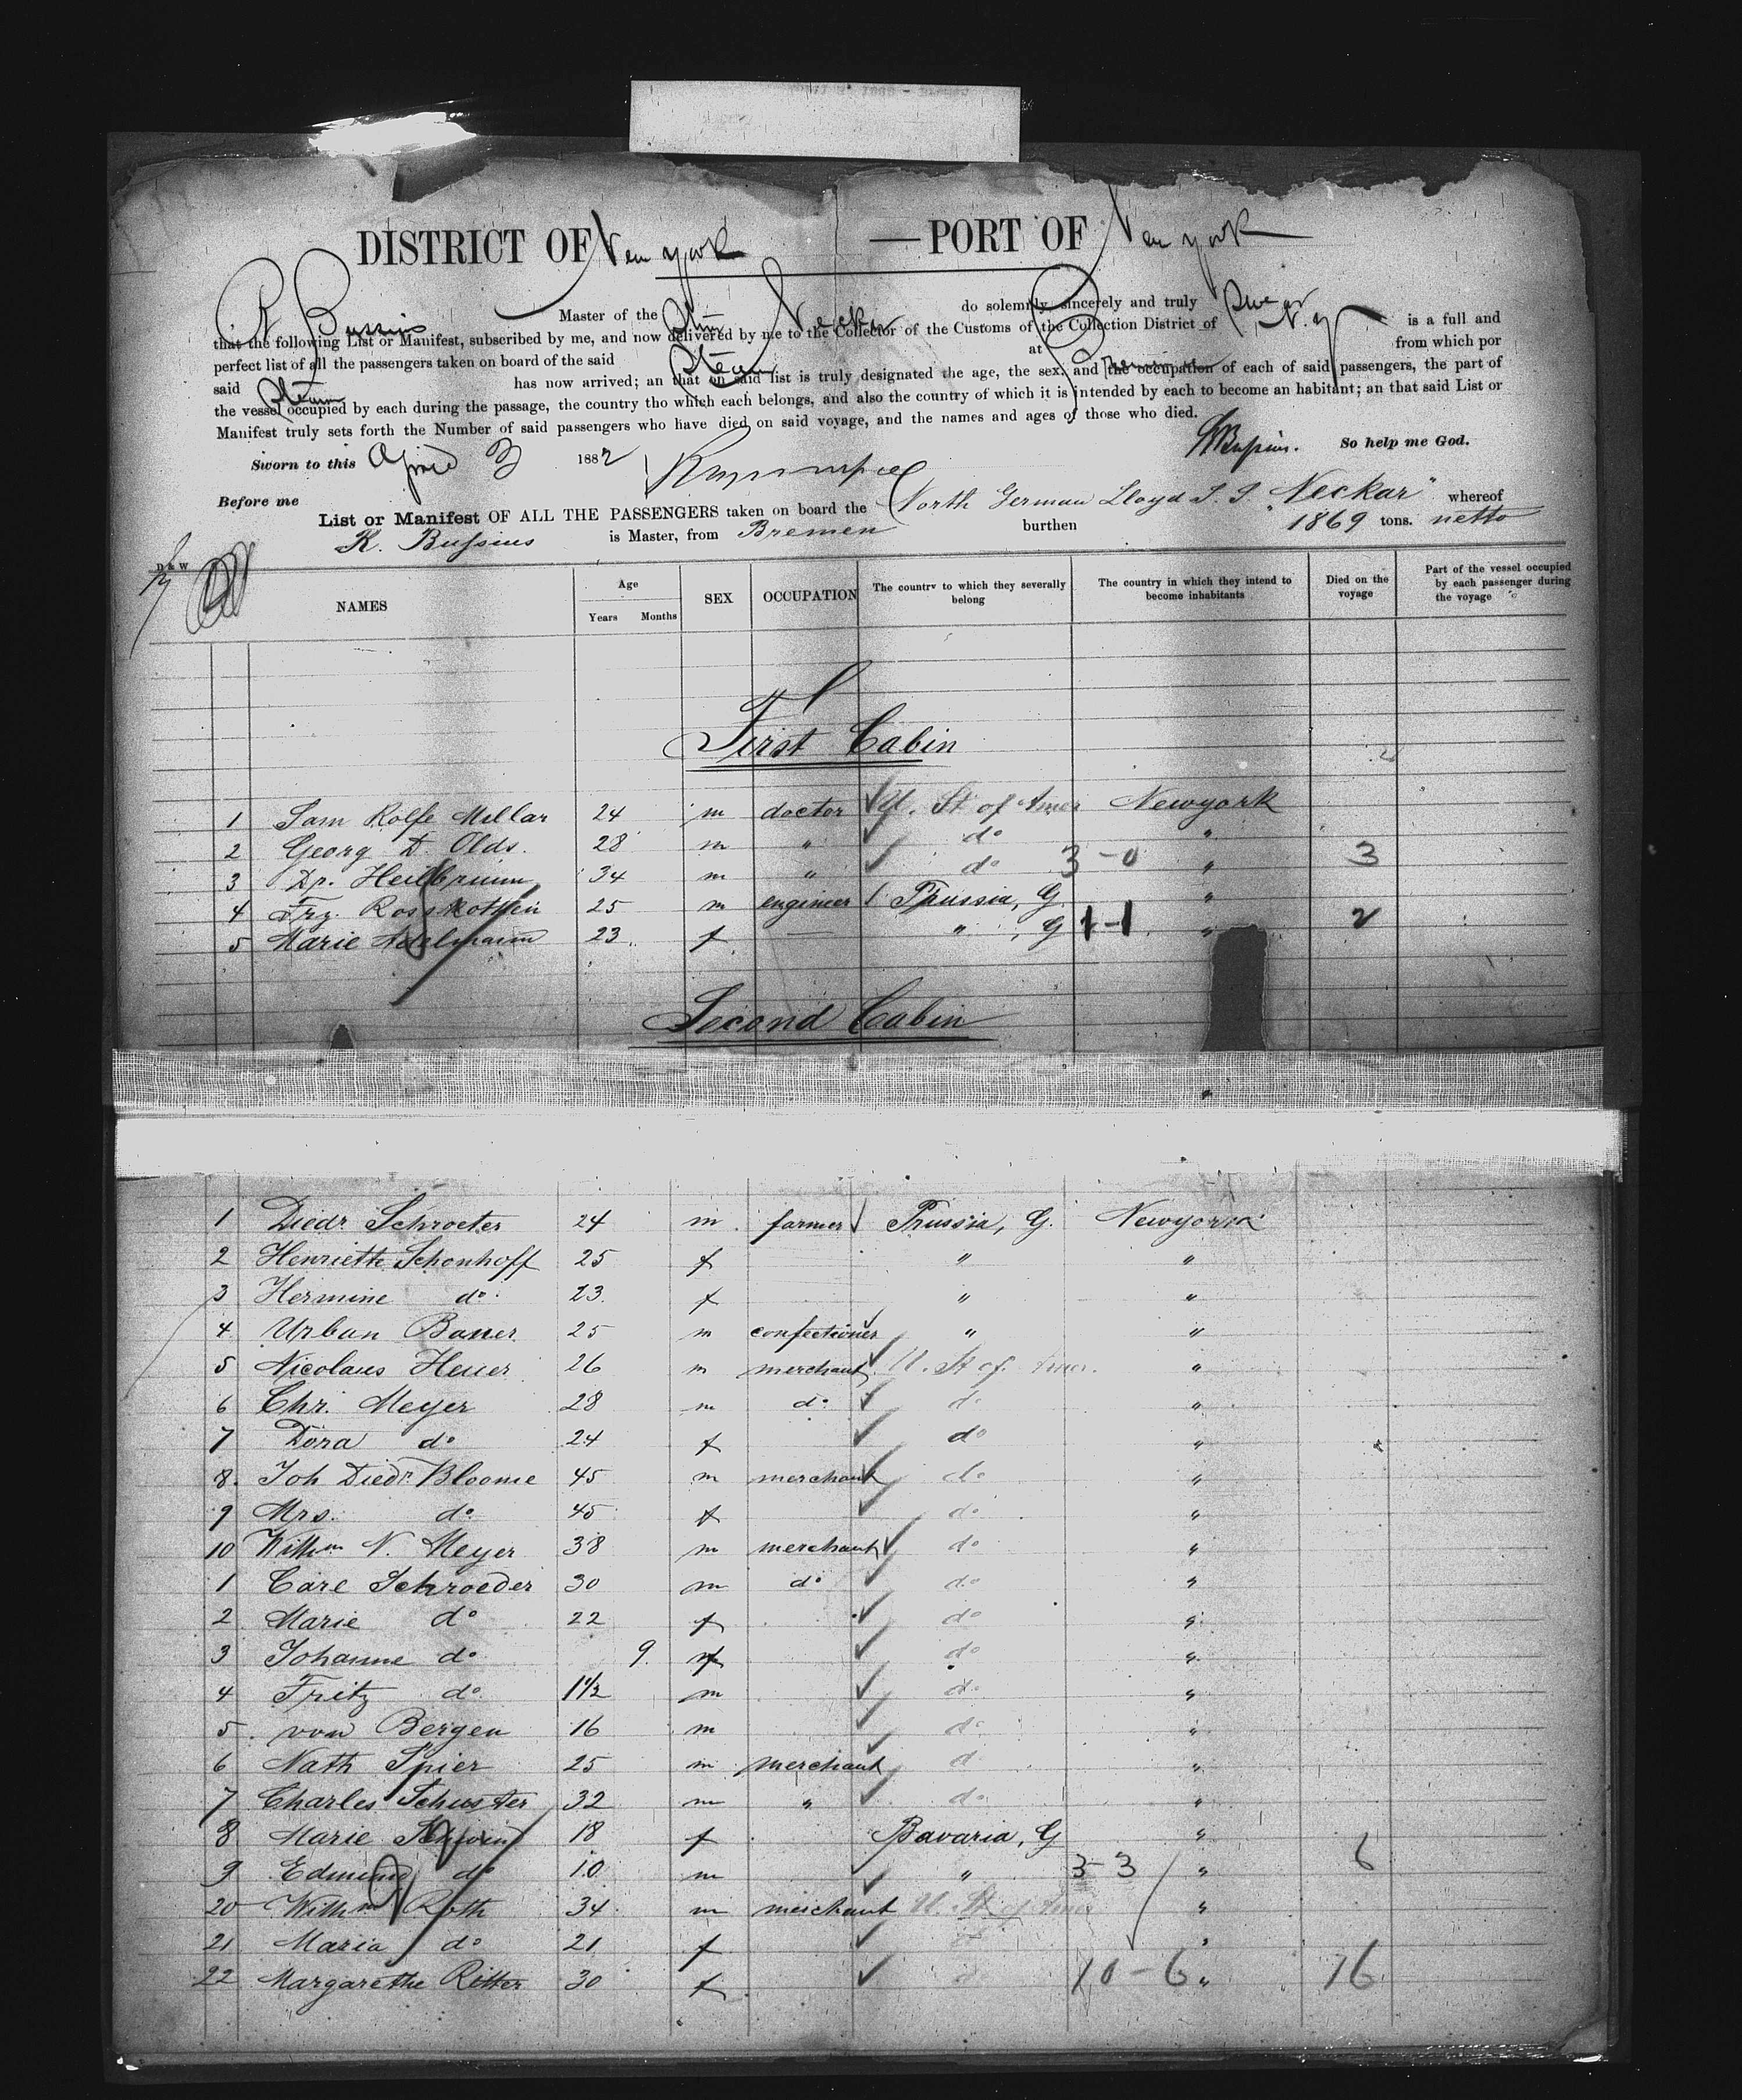 DISTRICT OF New York — PORT OF New York
R Bussius Master of the Stm Neckar do solemnly, sincerely and truly swear
that the following List or Manifest, subscribed by me, and now delivered by me to the Collector of the Customs of the Collection District of N.Y is a full and
perfect list of all the passengers taken on board of the said Steam at Bremen from which por
said Steam has now arrived; an that on said list is truly designated the age, the sex, and the occupation of each of said passengers, the part of
the vessel occupied by each during the passage, the country tho which each belongs, and also the country of which it is intended by each to become an habitant; an that said List or
Manifest truly sets forth the Number of said passengers who have died on said voyage, and the names and ages of those who died.
Sworn to this April 3 1882 RBussius. So help me God.
Before me
List or Manifest OF ALL THE PASSENGERS taken on board the North German Lloyd S. S. "Neckar" whereof
R. Bussius is Master, from Bremen burthen 1869 tons. netto
D & W
NAMES Age Years Months SEX OCCUPATION The country to which they severally belong The country in which they intend to become inhabitants Died on the voyage Part of the vessel occupied by each passenger during the voyage
First Cabin
1 Sam Rolfe Millar 24 m doctor U. St of Amer Newyork
2 Georg D. Olds. 28 m " do "
3 Dr. Heilbrunn 34 m " do 3-0 " 3
4 Frz. Rosskothen 25 m engineer Prussia, G "
5 Marie Adelmann 23 f — " , G 1-1 " 2
Second Cabin
1 Diedr. Schroeter 24 m farmer Prussia, G. Newyork
2 Henriette Schonhoff 25 f " "
3 Hermine do 23 f " "
4 Urban Bauer 25 m confectioner " "
5 Nicolaus Heuer 26 m merchant U. St of Amer. "
6 Chr. Meyer 28 m do do "
7 Dora do 24 f do "
8 Joh Diedr. Bloome 45 m merchant do "
9 Mrs. do 45 f do "
10 Willm N. Meyer 38 m merchant do "
1 Carl Schroeder 30 m do do "
2 Marie do 22 f do "
3 Johanne do 9 f do "
4 Fritz do 1 1/2 m do "
5 von Bergen 16 m do "
6 Nath Spier 25 m merchant do "
7 Charles Schuster 32 m " do "
8 Marie 18 f Bavaria, G "
9 Edmund do 10 m " 3-3 " 6
20 Willm Roth 34 m merchant U. St of Amer "
21 Maria do 21 f do "
22 Margarethe Ritter 30 f do 10-6 " 16